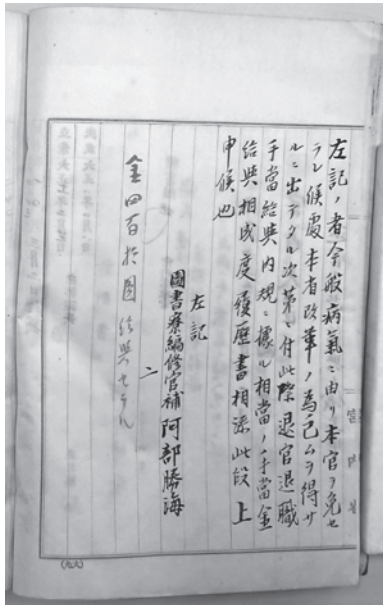 左記ノ者今般病氣ニ由リ本官ヲ免セ
ラレ候處本省改革ノ為已ムヲ得サ
ルニ出テタル次第ニ付此際退官退職
手當給與内規ニ據ル相當ノ手當金
給與相成度履歴書相添此段上
申候也
左記
圖書寮編修官補 阿部勝海
金四百拾圓給與セラル